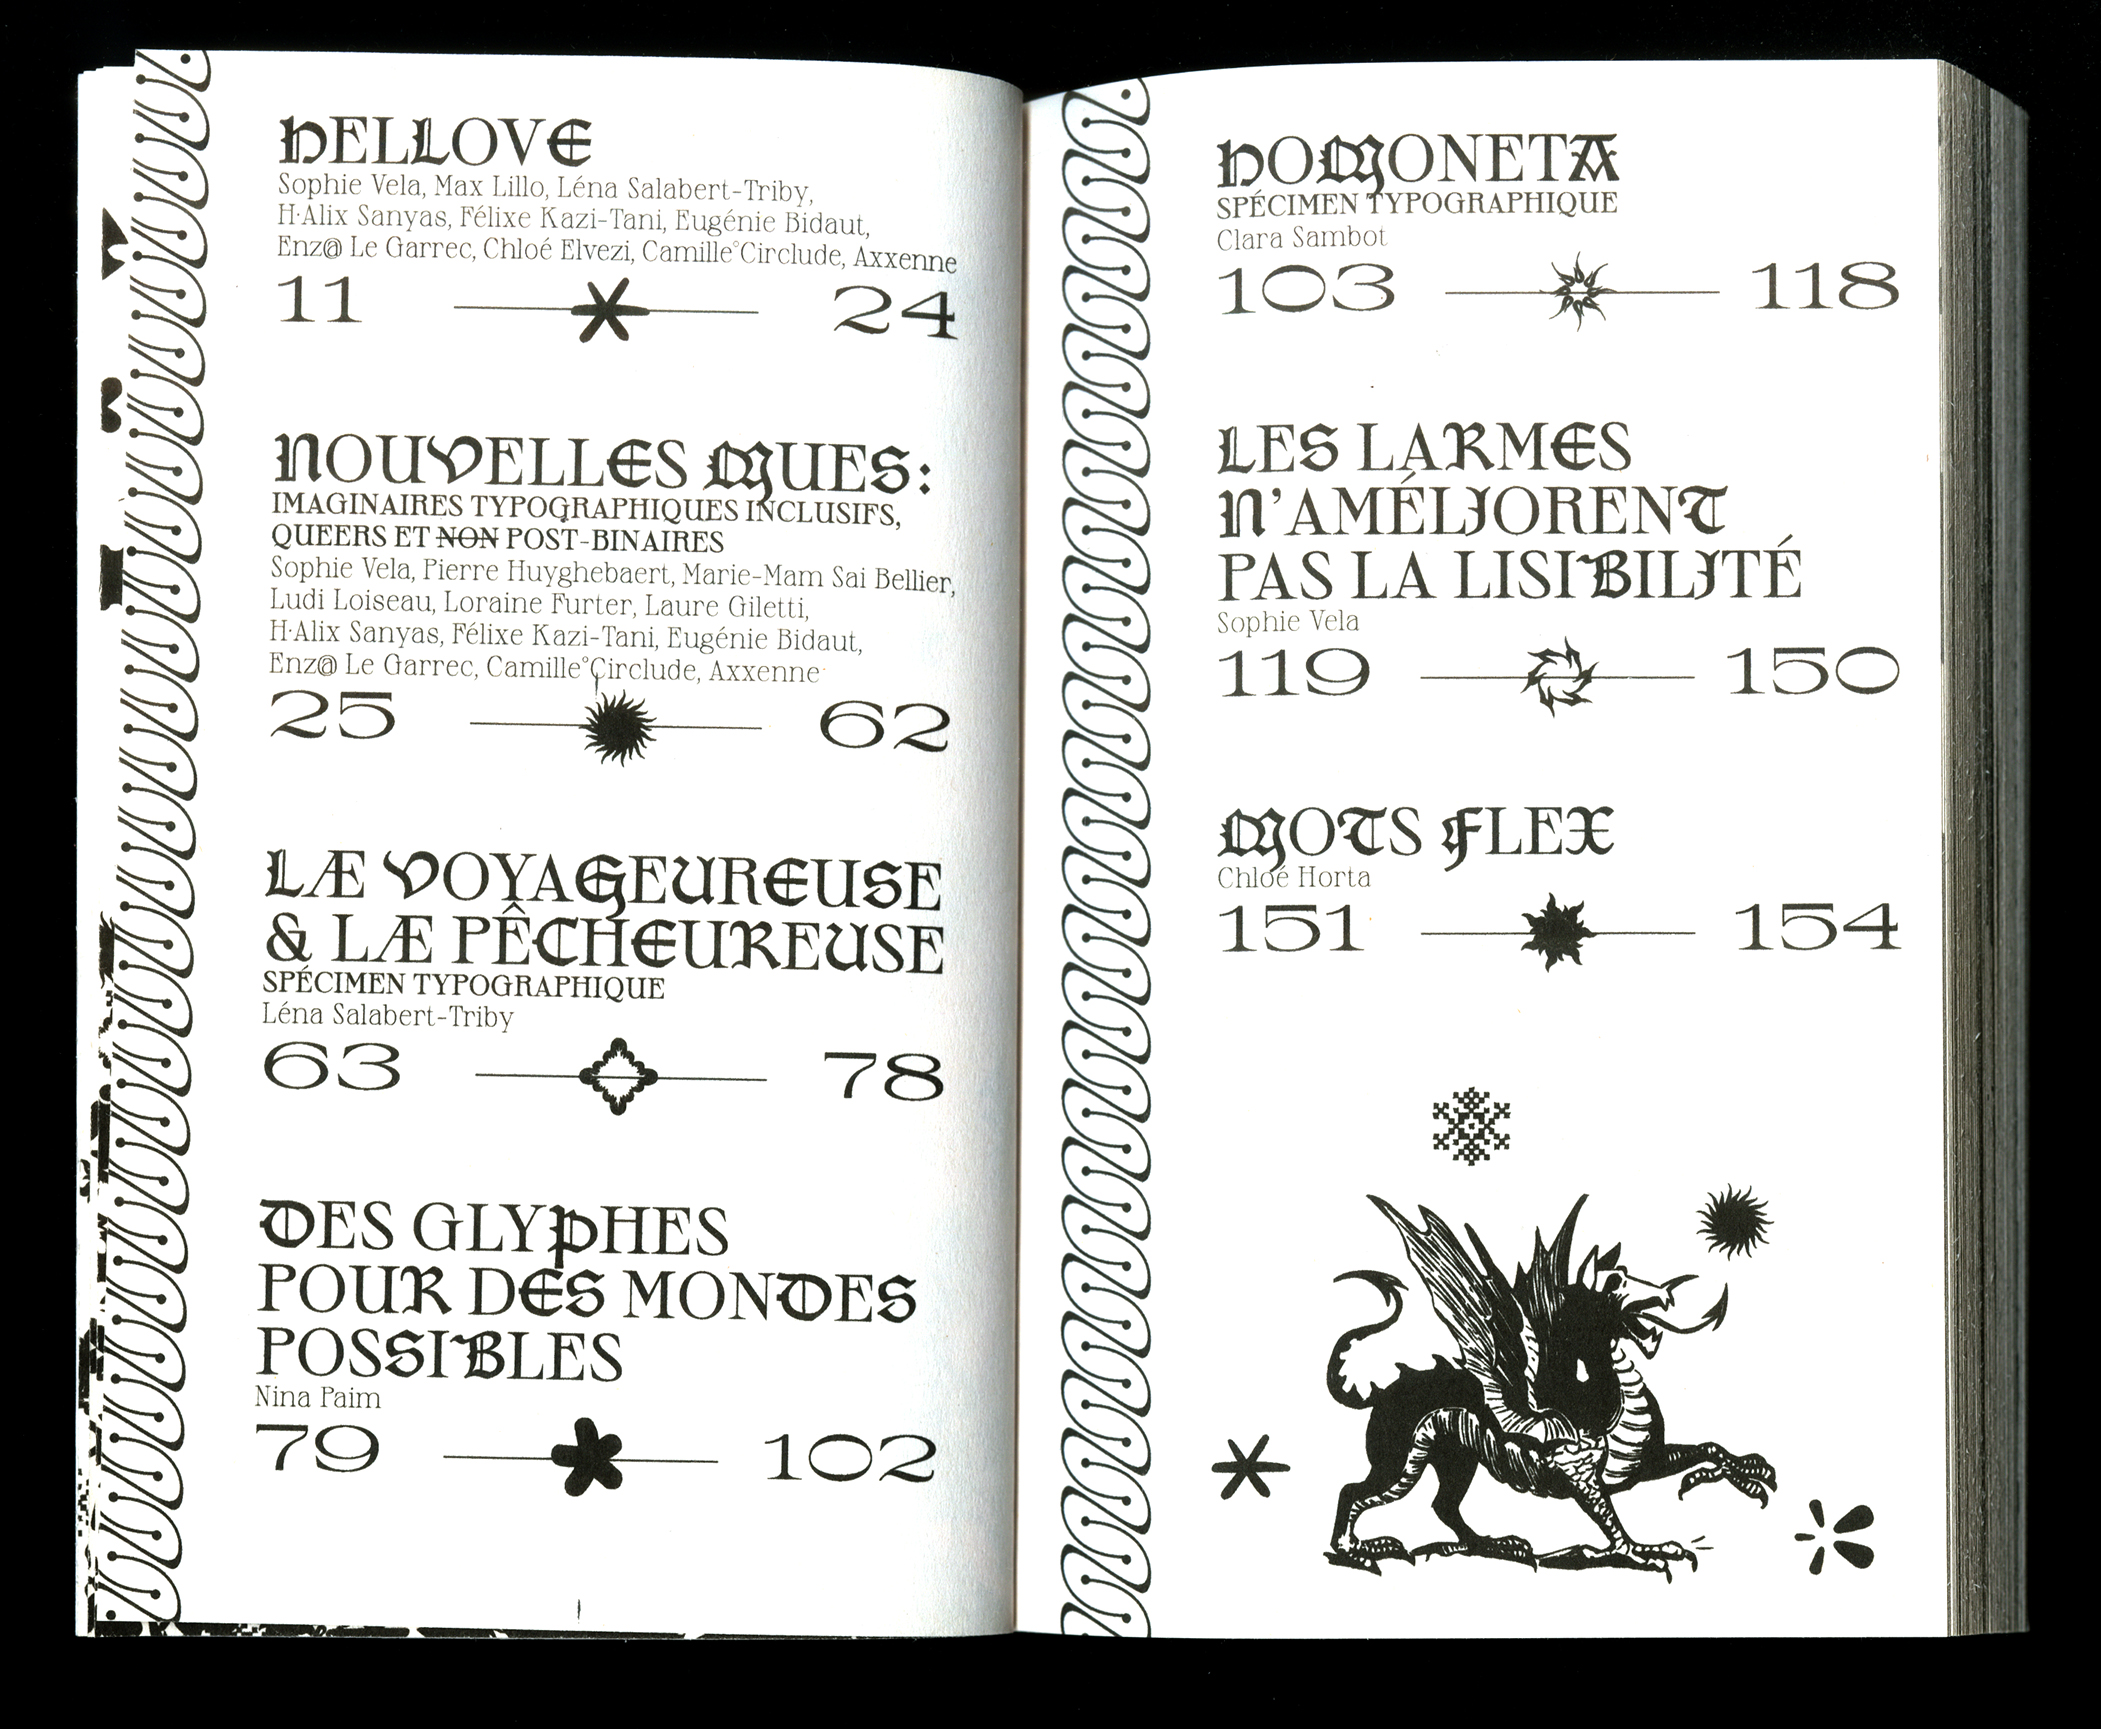 HELLOVE
Sophie Vela, Max Lillo, Léna Salabert-Triby,
H·Alix Sanyas, Félixe Kazi-Tani, Eugénie Bidaut,
Enz@ Le Garrec, Chloé Elvezi, Camille°Circlude, Axxenne
11 24
NOUVELLES MUES:
IMAGINAIRES TYPOGRAPHIQUES INCLUSIFS,
QUEERS ET NON POST-BINAIRES
Sophie Vela, Pierre Huyghebaert, Marie-Mam Sai Bellier,
Ludi Loiseau, Loraine Furter, Laure Giletti,
H·Alix Sanyas, Félixe Kazi-Tani, Eugénie Bidaut,
Enz@ Le Garrec, Camille°Circlude, Axxenne
25 62
LÆ VOYAGEUREUSE
& LÆ PÊCHEUREUSE
SPÉCIMEN TYPOGRAPHIQUE
Léna Salabert-Triby
63 78
DES GLYPHES
POUR DES MONDES
POSSIBLES
Nina Paim
79 102
HOMONETA
SPÉCIMEN TYPOGRAPHIQUE
Clara Sambot
103 118
LES LARMES
N'AMÉLIORENT
PAS LA LISIBILITÉ
Sophie Vela
119 150
MOTS FLEX
Chloé Horta
151 154